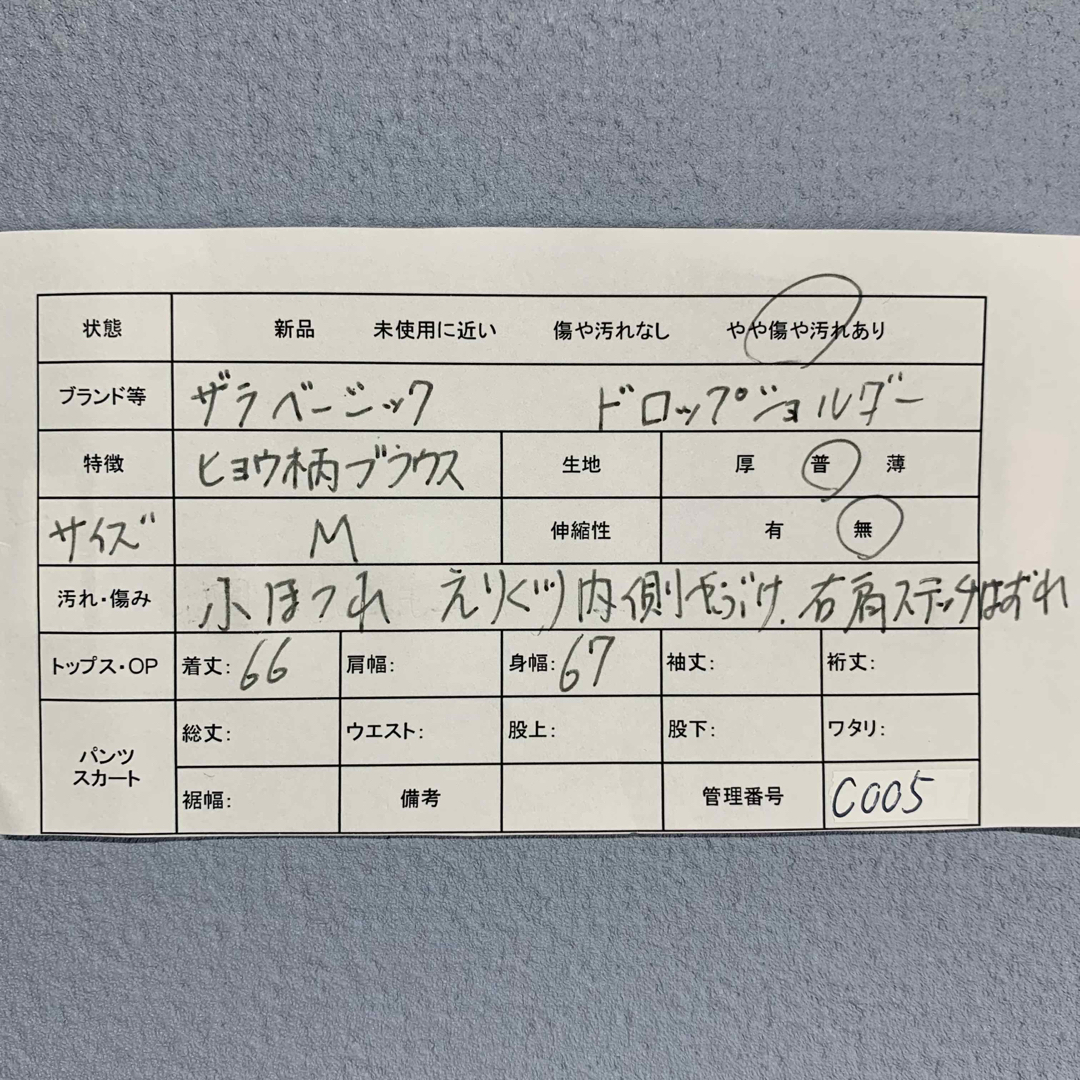 状態 新品 未使用に近い 傷や汚れなし やや傷や汚れあり
ブランド等 ザラベーシック ドロップショルダー
特徴 ヒョウ柄ブラウス 生地 厚 普 薄
サイズ M 伸縮性 有 無
汚れ・傷み 小ほつれ えりぐり内側やぶけ、右肩ステッチはずれ
トップス・OP 着丈: 66 肩幅: 身幅: 67 袖丈: 裄丈:
パンツ スカート 総丈: ウエスト: 股上: 股下: ワタリ:
裾幅: 備考 管理番号 C005